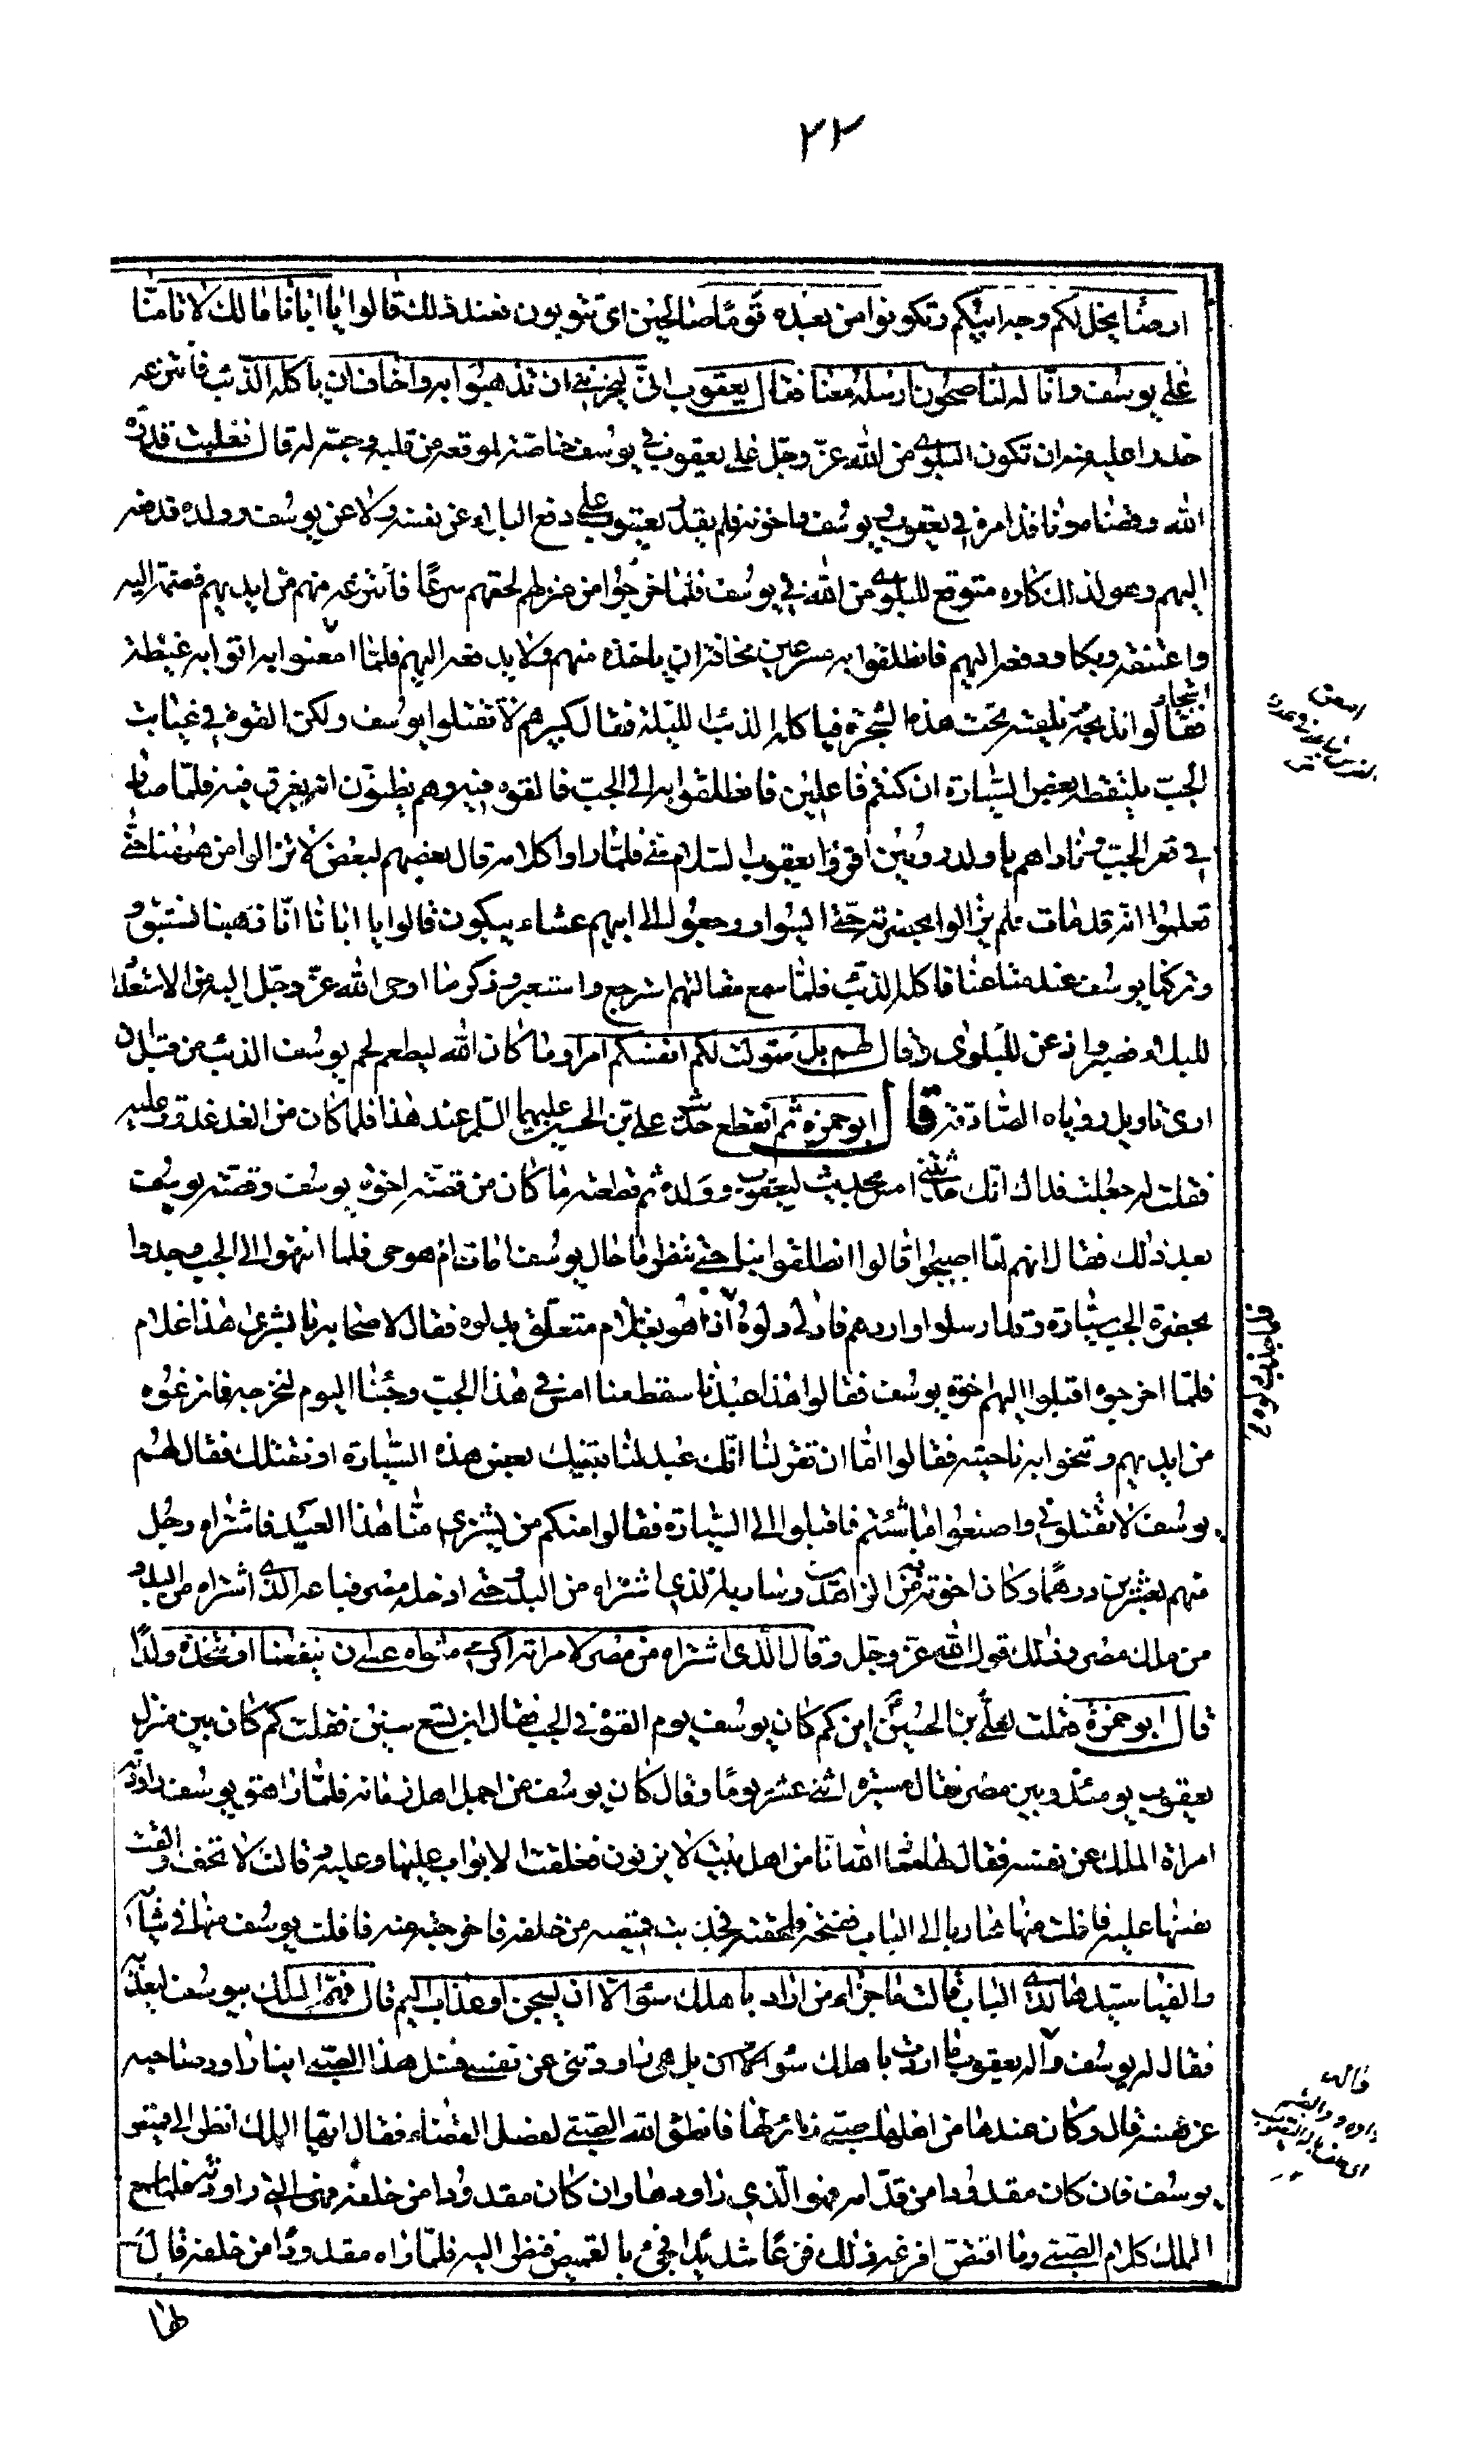 ٢٢
ارضا يخل لكم وجه ابيكم وتكونوا من بعده قوما صالحين اى تتوبون فعند ذلك قالوا يا ابانا ما لك لا تامنّا
على يوسف وانّا له لناصحون ارسله معنا فقال يعقوب انّى ليحزننى ان تذهبوا به واخاف ان ياكله الذئب فانتزعه
حذرا عليه منه ان تكون البلوى من الله عزّ وجلّ على يعقوب فى يوسف خاصّة لموقعه من قلبه وحبّه له قال فغلبت قدرة
الله وقضاه ونافذ امره فى يعقوب ويوسف واخوته فلم يقدر يعقوب على دفع البلاء عن نفسه ولا عن يوسف وولده فدفعه
اليهم وهو لذلك كاره متوقع للبلوى من الله فى يوسف فلمّا خرجوا من منزلهم لحقهم سرعا فانتزعه منهم من ايديهم فضمّه اليه
واعتنقه وبكا ودفعه اليهم فانطلقوا به مسرعين مخافة ان ياخذه منهم ولا يدفعه اليهم فلمّا امعنوا به اتوا به غيظة
اشجار
فقالوا نذبحه ونلقيه تحت هذه الشجرة فياكله الذئب الليلة فقال كبيرهم لا تقتلوا يوسف ولكن القوه فى غيابت
الجبّ يلتقطه بعض السّيارة ان كنتم فاعلين فانطلقوا به الى الجب فالقوه فيه وهم يظنّون انه يغرق فيه فلمّا صار
فى قعر الجب ناداهم يا ولد رومين اقرؤا يعقوب السّلام منّى فلمّا راوا كلامه قال بعضهم لبعض لا تزالوا من ههنا حتى
تعلموا انّه قد مات فلم يزالوا بحضرته حتّى ايسوا ورجعوا الى ابيهم عشاء يبكون قالوا يا ابانا انّا ذهبنا نستبق و
وتركنا يوسف عند متاعنا فاكله الذئب فلمّا سمع مقالتهم استرجع واستعبر وذكر ما اوحى الله عزّ وجلّ اليه من الاستعداد
للبلاء فصبر واذعن للبلوى وقال لهم بل سوّلت لكم انفسكم امرا وما كان الله ليطعم لحم يوسف الذئب من قبل ان
ارى تاويل روياه الصّادقة قال ابو حمزة ثم انقطع حديث على بن الحسين عليهما السّلم عند هذا فلما كان من الغد غدوت عليه
فقلت له جعلت فداك انّك حدّثتنى امس بحديث ليعقوب وولده ثم قطعته ما كان من قصّة اخوة يوسف وقصّة يوسف
بعد ذلك فقال انهم لمّا اصبحوا قالوا انطلقوا بنا حتى ننظر ما حال يوسف امات ام هو حى فلما انتهوا الى الجب وجدوا
بحضرة الجب سيّارة وقد ارسلوا واردهم فادلى دلوه اذا هو بغلام متعلّق بدلوه فقال لاصحابه يا بشرى هذا غلام
فلمّا اخرجوه اقبلوا اليهم اخوة يوسف فقالوا هذا عبدنا سقط منا امس فى هذا الجبّ وجئنا اليوم لنخرجه فانتزعوه
من ايديهم وتنحوا به ناحية فقالوا امّا ان تقرّ لنا انّك عبد لنا فنبيعك بعض هذه السّيارة او نقتلك فقال لهم
يوسف لا تقتلونى واصنعوا ما شئتم فاقبلوا الى السّيارة فقالوا منكم من يشترى منّا هذا العبد فاشتراه رجل
منهم بعشرين درهما وكان اخوته فيه من الزاهدين وسار به الذى اشتراه من البدو حتى ادخله مصر فباعه الذى اشتراه من البدو
من ملك مصر وذلك قول الله عزّ وجلّ وقال الّذى اشتراه من مصر لامراته اكرمى مثواه عسى ان ينفعنا او نتّخذه ولدا
قال ابو حمزة فقلت لعلىّ بن الحسين ابن كم كان يوسف يوم القوه فى الجب فقال ابن تسع سنين فقلت كم كان بين منزل
يعقوب يومئذ وبين مصر فقال مسيرة اثنى عشر يوما وقال كان يوسف من اجمل اهل زمانه فلمّا راهق يوسف راودته
امراة الملك عن نفسه فقال لها معاذ الله انّا من اهل بيت لا يزنون فغلقت الابواب عليها وعليه وقالت لا تخف والقت
نفسها عليه فافلت منها هاربا الى الباب ففتحه ولحقته فجذبت قميصه من خلفه فاخرجته منه فافلت يوسف منها فى ثيابه
والفيا سيّدها لدى الباب قالت ما جزاء من اراد باهلك سوءا الّا ان يسجن او عذاب اليم قال فهمّ الملك بيوسف ليعذّبه
فقال له يوسف واله يعقوب ما اردت باهلك سوءا بل هى راودتنى عن نفسى فسئل هذا الصّبى ايّنا راود صاحبه
عن نفسه قال وكان عندها من اهلها صبى زائر لها فانطق الله الصّبى لفصل القضاء فقال ايّها الملك انظر الى قميص
يوسف فان كان مقدودا من قدّامه فهو الّذى راودها وان كان مقدودا من خلفه فهى التى راودته فلما سمع
الملك كلام الصّبى وما اقتصّ افزعه ذلك فزعا شديدا فجىء بالقميص فنظر اليه فلمّا راه مقدودا من خلفه قال
لها